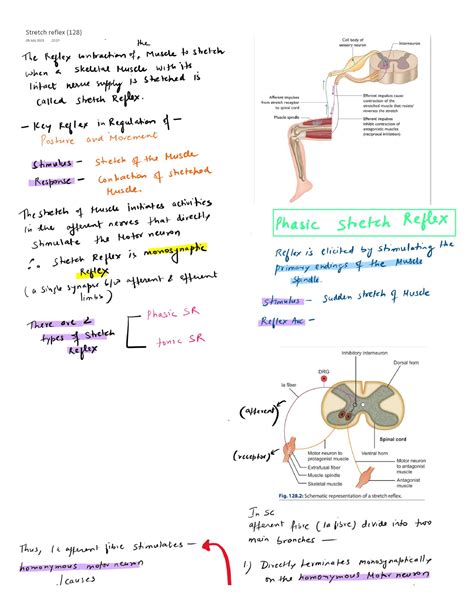 Stretch reflex (128)
the
The Reflex contraction of Muscle to stretch
when a skeletal Muscle with its
intact nerve supply is stretched is
called stretch Reflex.
- Key Reflex in Regulation of -
Posture and Movement
Stimulus - Stretch of the Muscle
Response - Contraction of stretched
Muscle.
The stretch of Muscle initiates activities
in the afferent nerves that directly
stimulate the Motor neuron
∴ Stretch Reflex is monosynaptic
Reflex
(a single synapse b/w afferent & efferent
limbs)
There are 2
types of Stretch
Reflex
Phasic SR
tonic SR
Thus, Ia afferent fibre stimulates -
homonymous motor neuron
causes
Cell body of
sensory neuron
Interneuron
Afferent impulses
from stretch receptor
to spinal cord
Muscle spindle
Efferent impulses cause
contraction of the
stretched muscle that resists/
reverses the stretch
Efferent impulses
inhibit contraction of
antagonistic muscles
(reciprocal inhibition)
Phasic Stretch Reflex
Reflex is elicited by stimulating the
primary endings of the Muscle
Spindle.
Stimulus - Sudden stretch of Muscle
Reflex Arc -
Inhibitory interneuron
DRG
Dorsal horn
Ia fiber
(afferent)
Spinal cord
(receptor)
Motor neuron to
protagonist muscle
Ventral horn
Extrafusal fiber
Muscle spindle
Skeletal muscle
Motor neuron
to antagonist
muscle
Antagonist
muscle
Fig. 128.2: Schematic representation of a stretch reflex.
In SC
afferent fibre (Ia fibre) divide into two
main branches -
1) Directly terminates monosynaptically
on the homonymous Motor neuron